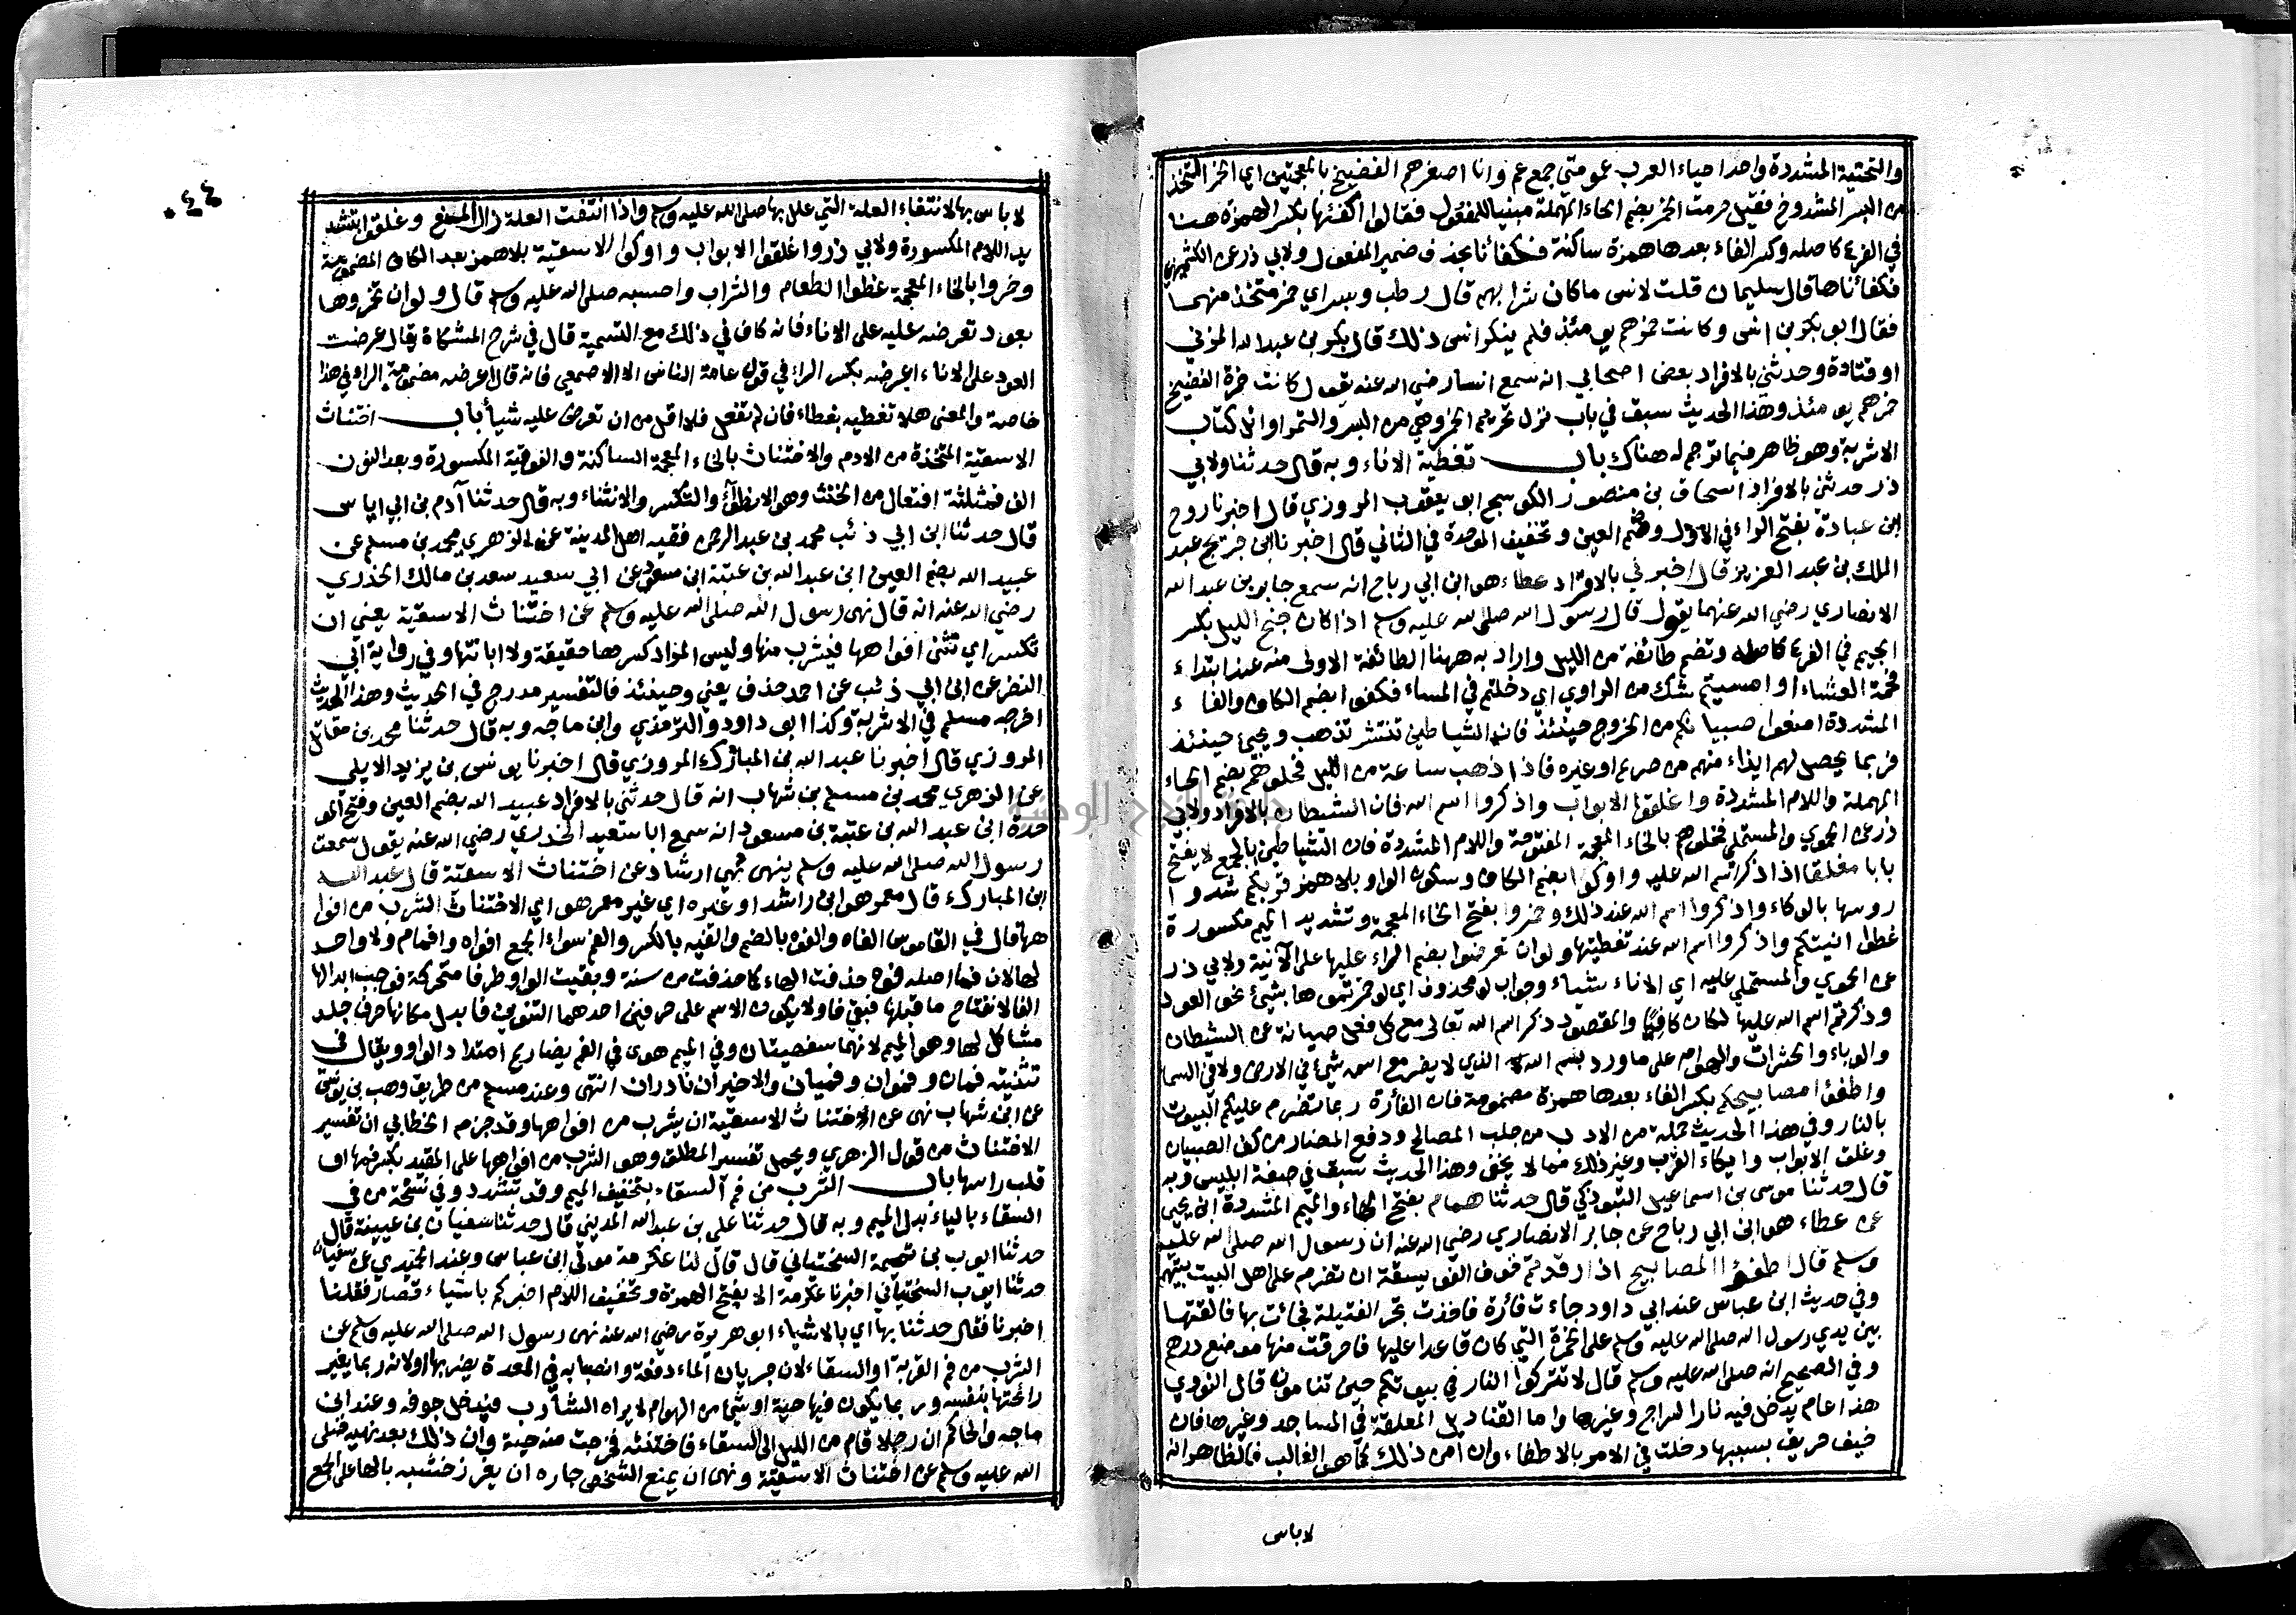 والتحتية المشددة واحد احياء العرب عمومتي جمع عم وانا اصغرهم الفضيخ بالمعجمتين اي الخمر المتخذ
من البسر المشدوخ فقيل حرمت الخمر بضم الحاء المهملة مبنيا للمفعول فقالوا اكفئها بكسر الهمزة هنا
في الفرع كاصله وكسر الفاء بعدها همزة ساكنة فكفأنا بحذف ضمير المفعول ولابي ذر عن الكشميهني
فكفأناها قال سليمان قلت لانس ما كان شرابهم قال رطب وبسر اي خمر متخذ منهما
فقال ابو بكر بن انس وكانت خمرهم يومئذ فلم ينكر انس ذلك قال بكر بن عبد الله المزني
او قتادة وحدثني بالافراد بعض اصحابي انه سمع انسا رضي الله عنه يقول كانت خمرة الفضيخ
خمرهم يومئذ وهذا الحديث سبق في باب نزل تحريم الخمر وهي من البسر والتمر اوائل كتاب
الاشربة وهو ظاهر فيما ترجم له هناك باب تغطية الاناء وبه قال حدثنا ولابي
ذر حدثني بالافراد اسحاق بن منصور الكوسج ابو يعقوب المروزي قال اخبرنا روح
ابن عبادة بفتح الراء في الاول وضم العين وتخفيف الموحدة في الثاني قال اخبرنا ابن جريج عبد
الملك بن عبد العزيز قال اخبرني بالافراد عطاء هو ابن ابي رباح انه سمع جابر بن عبد الله
الانصاري رضي الله عنهما يقول قال رسول الله صلى الله عليه وسلم اذا كان جنح الليل بكسر
الجيم في الفرع كاصله وتضم طائفة من الليل واراد به ههنا الطائفة الاولى منه عند ابتداء
فحمة العشاء او امسيتم شك من الراوي اي دخلتم في المساء فكفوا بضم الكاف والفاء
المشددة امنعوا صبيانكم من الخروج حينئذ فان الشياطين تنتشر تذهب وتجيئ حينئذ
فربما يحصل لهم ايذاء منهم من صرع او غيره فاذا ذهب ساعة من الليل فحلوهم بضم الحاء
المهملة واللام المشددة واغلقوا الابواب واذكروا اسم الله فان الشيطان بالافراد ولابي
ذر عن الحموي والمستملي فخلوهم بالخاء المعجمة المفتوحة واللام المشددة فان الشياطين بالجمع لا يفتح
بابا مغلقا اذا ذكر اسم الله عليه واوكوا بضم الكاف وسكون الواو بلا همز قربكم شدوا
روسها بالوكاء واذكروا اسم الله عند ذلك وخمروا بفتح الخاء المعجمة وتشديد الميم مكسورة
غطوا انيتكم واذكروا اسم الله عند تغطيتها ولو ان تعرضوا بضم الراء عليها على الآنية ولابي ذر
عن الحموي والمستملي عليه اي الاناء شيأ وجواب لو محذوف اي لو خمرتموها بشيئ نحو العود
وذكرتم اسم الله عليها لكان كافيا والمقصود ذكر اسم الله تعالى مع كل فعل صيانة عن الشيطان
والوباء والحشرات والهوام على ما ورد بسم الله الذي لا يضر مع اسمه شيئ في الارض ولا في السما
واطفئوا مصابيحكم بكسر الفاء بعدها همزة مضمومة فان الفأرة ربما تضرم عليكم البيوت
بالنار وفي هذا الحديث جملة من الادب من جلب المصالح ودفع المضار من كف الصبيان
وغلق الابواب وايكاء القرب وغير ذلك مما لا يخفى وهذا الحديث سبق في صفة ابليس وبه
قال حدثنا موسى بن اسماعيل التبوذكي قال حدثنا همام بفتح الهاء والميم المشددة ابن يحيى
عن عطاء هو ابن ابي رباح عن جابر الانصاري رضي الله عنه ان رسول الله صلى الله عليه
وسلم قال اطفؤا المصابيح اذا رقدتم فوف الفويسقة ان تضرم على اهل البيت بيتهم
وفي حديث ابن عباس عند ابي داود جاءت فأرة فاخذت تجر الفتيلة فجائت بها فالقتها
بين يدي رسول الله صلى الله عليه وسلم على الخمرة التي كان قاعدا عليها فاحرقت منها موضع درهم
وفي الصحيح انه صلى الله عليه وسلم قال لا تتركوا النار في بيوتكم حين تنامون قال النووي
هذا عام يدخل فيه نار السراج وغيرها واما القناديل المعلقة في المساجد وغيرها فان
خيف حريق بسببها دخلت في الامر بالاطفاء وان امن ذلك كما هو الغالب فالظاهر انه
لا باس
٤٤٠
لا باس بها لانتفاء العلة التي علل بها صلى الله عليه وسلم واذا انتفت العلة زال المنع وغلقوا بتشد
يد اللام المكسورة ولابي ذر واغلقوا الابواب واوكوا الاسقية بلا همز بعد الكاف المضمومة
وخمروا بالخاء المعجمة غطوا الطعام والشراب واحسبه صلى الله عليه وسلم قال ولو ان تخمروها
بعود تعرضه عليه على الاناء فانه كاف في ذلك مع التسمية قال في شرح المشكاة يقال عرضت
العود على الاناء اعرضه بكسر الراء في قول عامة الناس الا الاصمعي فانه قال اعرضه مضمومة الراء في هذا
خاصة والمعنى هلا تغطيه بغطاء فان لم تفعل فلا اقل من ان تعرض عليه شيأ باب اختناث
الاسقية المتخذة من الادم والاختناث بالخاء المعجمة الساكنة والفوقية المكسورة وبعد النون
الف فمثلثة افتعال من الخنث وهو الانطواء والتكسر والانثناء وبه قال حدثنا آدم بن ابي اياس
قال حدثنا ابن ابي ذئب محمد بن عبد الرحمن فقيه اهل المدينة عن الزهري محمد بن مسلم عن
عبيد الله بضم العين ابن عبد الله بن عتبة ابن مسعود عن ابي سعيد سعد بن مالك الخدري
رضي الله عنه انه قال نهى رسول الله صلى الله عليه وسلم عن اختناث الاسقية يعني ان
تكسر اي تثنى افواهها فيشرب منها وليس المراد كسرها حقيقة ولا ابانتها وفي رواية ابي
النضر عن ابن ابي ذئب عن احمد حذف يعني وحينئذ فالتفسير مدرج في الحديث وهذا الحديث
اخرجه مسلم في الاشربة وكذا ابو داود والترمذي وابن ماجه وبه قال حدثنا محمد بن مقاتل
المروزي قال اخبرنا عبد الله بن المبارك المروزي قال اخبرنا يونس بن يزيد الايلي
عن الزهري محمد بن مسلم بن شهاب انه قال حدثني بالافراد عبيد الله بضم العين وفتح المو
حدة ابن عبد الله بن عتبة بن مسعود انه سمع ابا سعيد الخدري رضي الله عنه يقول سمعت
رسول الله صلى الله عليه وسلم ينهى نهي ارشاد عن اختناث الاسقية قال عبد الله
ابن المبارك قال معمر هو ابن راشد او غيره اي غير معمر هو اي الاختناث الشرب من افوا
هها قال في القاموس الفاه والفوه بالضم والفيه بالكسر والفم سواء الجمع افواه وافمام ولا واحد
لها لان فما اصله فوه حذفت الهاء كما حذفت من سنة وبقيت الواو طرفا متحركة فوجب ابدالها
الفا لانفتاح ما قبلها فبقي فا ولا يكون الاسم على حرفين احدهما التنوين فابدل مكانها حرف جلد
مشاكل لها وهو الميم لانهما شفهيتان وفي الميم هوى في الفم يضارع امتداد الواو ويقال في
تثنيته فمان وفموان وفميان والاخيران نادران انتهى وعند مسلم من طريق وهب بن يونس
عن ابن شهاب نهى عن الاختناث الاسقية ان يشرب من افواهها وقد جزم الخطابي ان تفسير
الاختناث من قول الزهري ويحمل تفسير المطلق وهو الشرب من افواهها على المقيد بكسر فمها او
قلب راسها باب الشرب من فم السقاء بتخفيف الميم وقد تشدد وفي نسخة من في
السقاء بالياء بدل الميم وبه قال حدثنا علي بن عبد الله المديني قال حدثنا سفيان بن عيينة قال
حدثنا ايوب بن تميمة السختياني قال قال لنا عكرمة مولى ابن عباس وعند الحميدي عن سفيان
حدثنا ايوب السختياني اخبرنا عكرمة الا بفتح الهمزة وتخفيف اللام اخبركم باشياء قصار فقلنا
اخبرنا فقال حدثنا بها اي بالاشياء ابو هريرة رضي الله عنه نهى رسول الله صلى الله عليه وسلم عن
الشرب من فم القربة او السقاء لان جريان الماء دفعة وانصبابه في المعدة يضر بها اولانه ربما يغير
رائحتها بنفسه وربما يكون فيها حية او شيئ من الهوام لا يراه الشارب فيدخل جوفه وعند ابن
ماجه والحاكم ان رجلا قام من الليل الى السقاء فاختنثه فخرجت منه حية وان ذلك بعد نهيه صلى
الله عليه وسلم عن اختناث الاسقية ونهى ان يمنع الشخص جاره ان يغرز خشبه بالهاء على الجمع